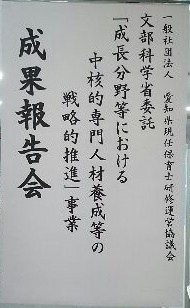 一般社団法人　愛知県現任保育士研修運営協議会
文部科学省委託
「成長分野等における
中核的専門人材養成等の
戦略的推進」事業
成果報告会